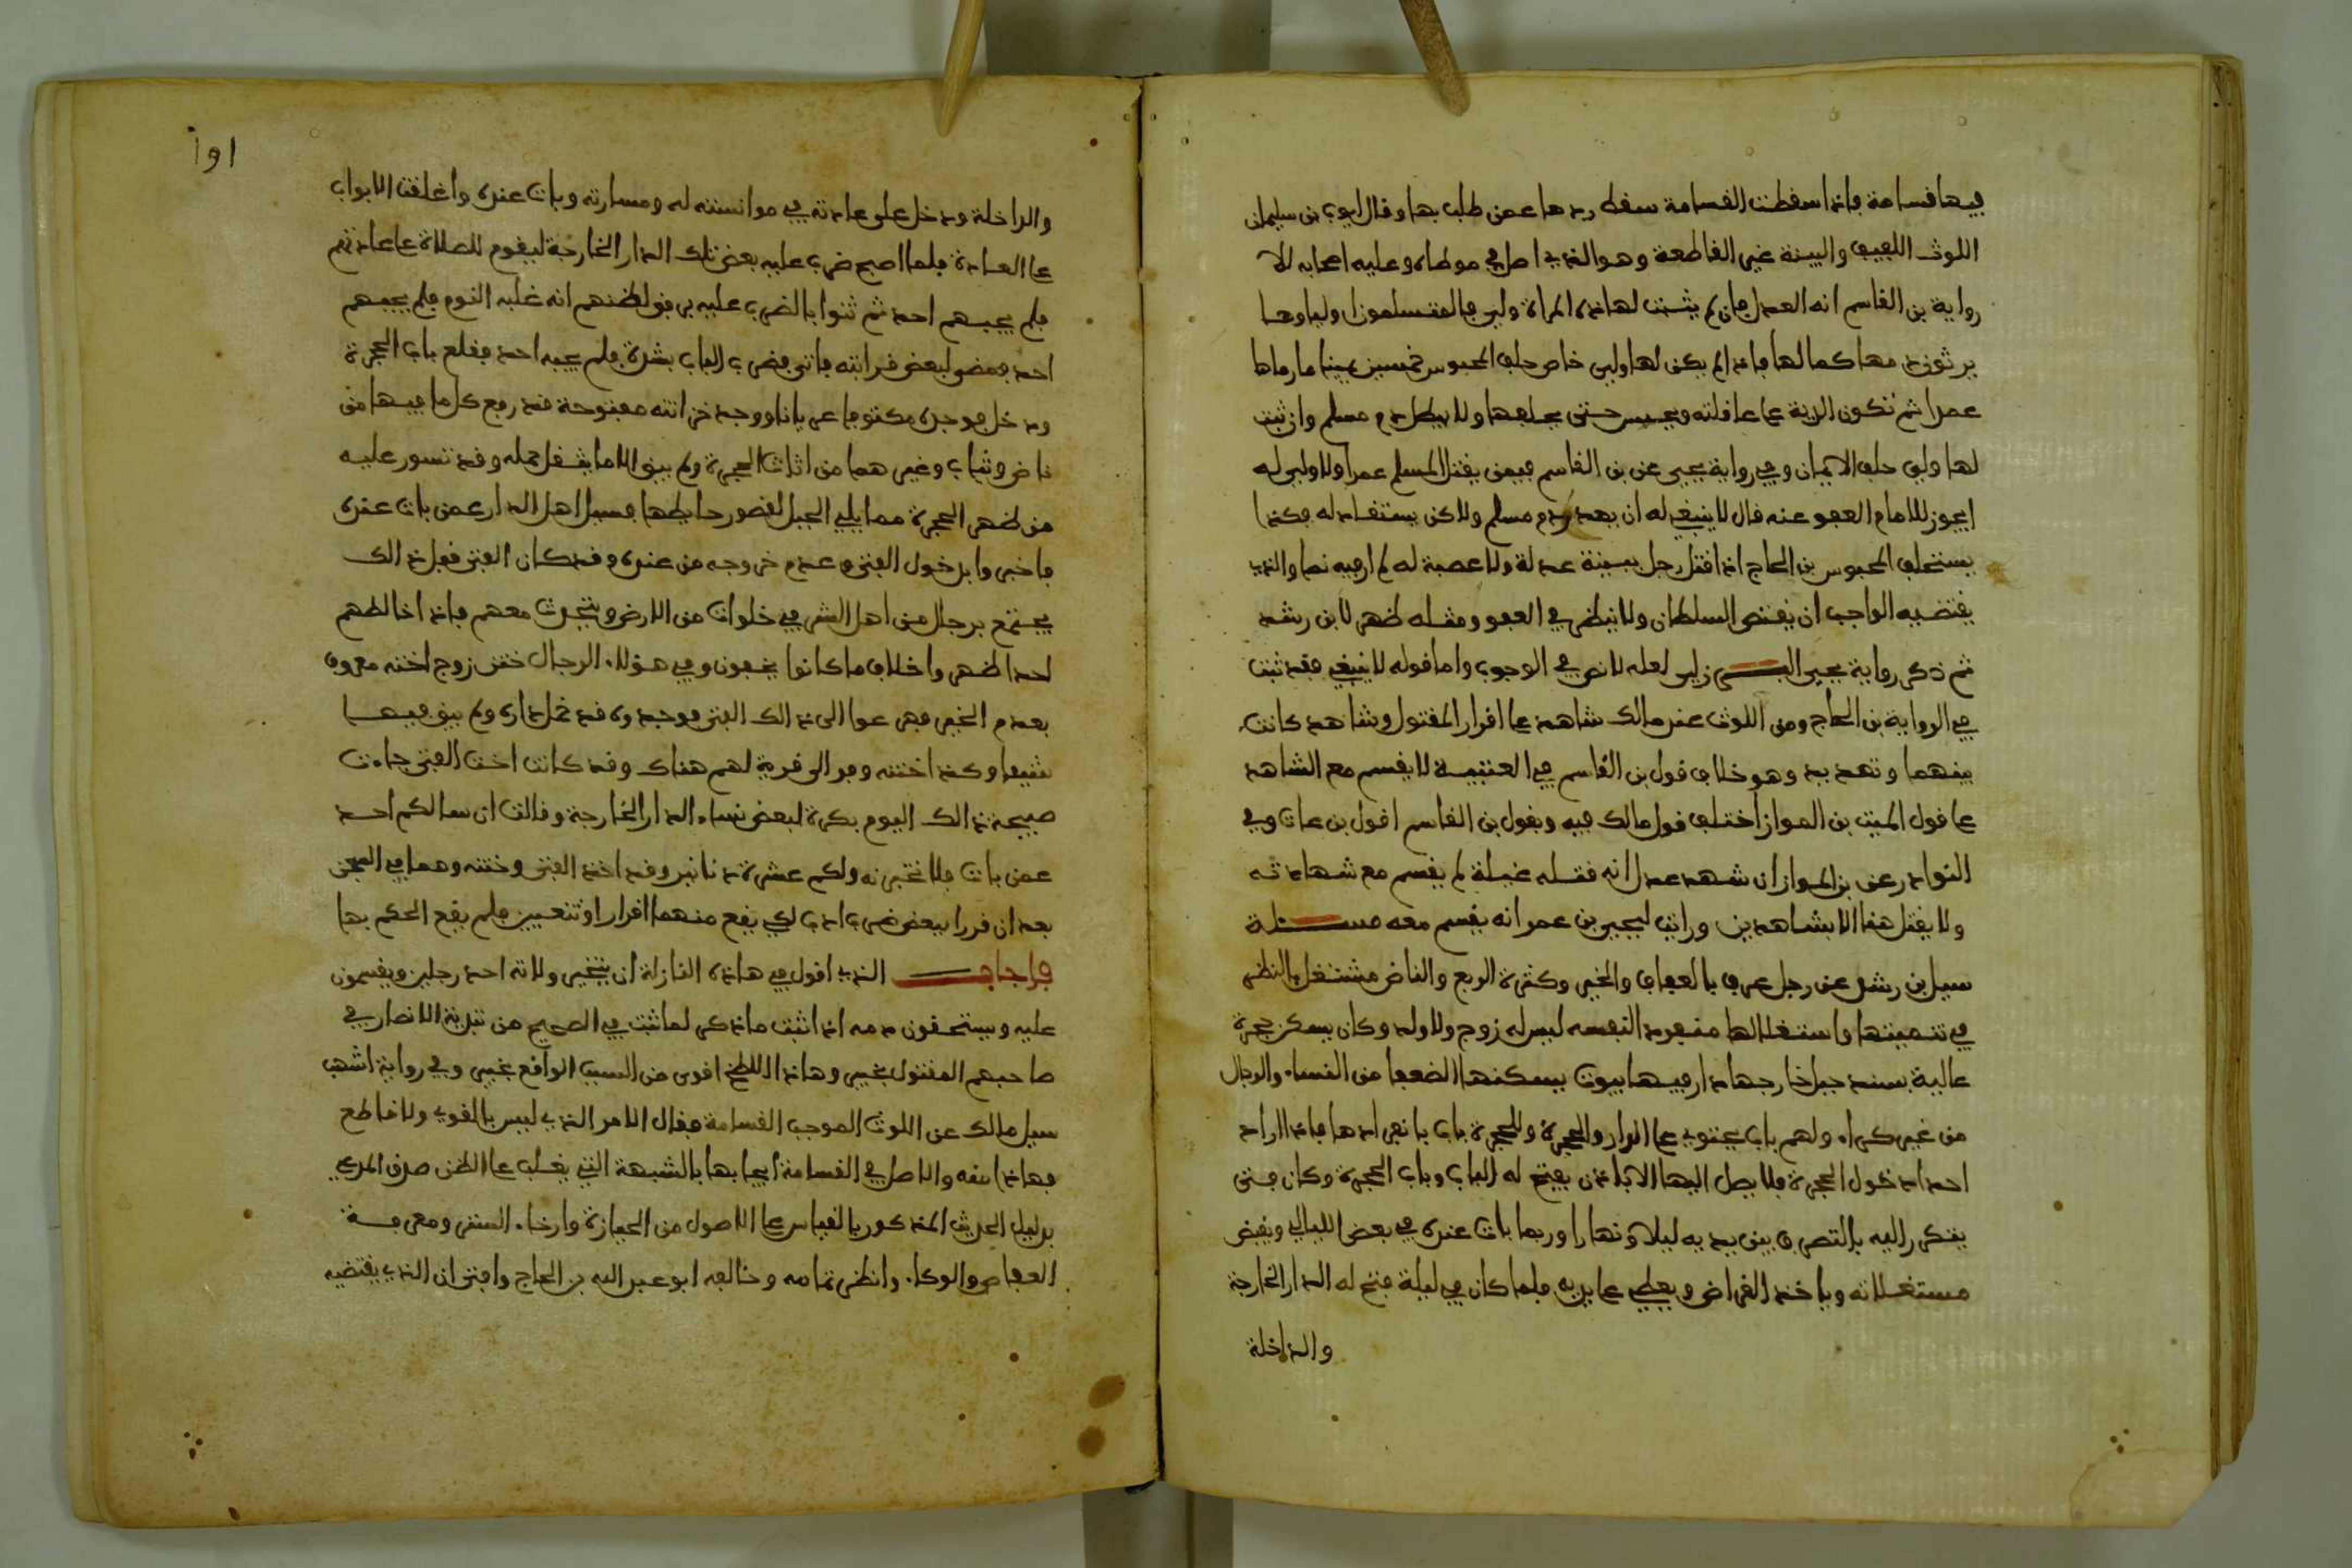 فيها قسامة فإذا سقطت القسامة سقط ردها عمن طلب بها وقال ايوب بن سليمان
اللوث اللفيف والبينة غير القاطعة وهو الذي اصل في موطاه وعليه اصحابه الا
رواية بن القاسم انه العدل فان لم يثبت لهاذه المراة ولي فالمتسلمون اولياوها
يرثون دمها كما لها فاذا لم يكن لها ولي خاص حلف المحبوس خمسين يمينا ما رماها
عمدا ثم تكون الدية على عاقلته ويحبس حتى يحلفها ولا يبطل دم مسلم وان ثبت
لها ولي حلف الايمان وفي رواية يحيى عن بن القاسم فيمن يقتل المسلم عمدا ولا ولي له
ايجوز للامام العفو عنه قال لا ينبغي له ان يهدر دم مسلم ولاكن يستقاد له فكذا
يستحلف المحبوس بن الحاج اذا قتل رجل ببينة عدلة ولا عصبة له لم ار فيه نصا والذي
يقتضيه الواجب ان يقتص السلطان ولا ينظر في العفو ومثله ظهر لابن رشد
ثم ذكر رواية يحيى لعله لا نص في الوجوب واما قوله لا ينبغي فقد ثبت
في الرواية بن الحاج ومن اللوث عند مالك شاهد على اقرار المقتول وشاهد كانت
بينهما وتهديد وهو خلاف قول بن القاسم في العتبية لا يقسم مع الشاهد
على قول الميت بن المواز اختلف قول مالك فيه وبقول بن القاسم اقول بن عات وفي
النوادر عن بن المواز ان شهد عدل انه قتله غيلة لم يقسم مع شهادته
ولا يقتل هذا الا بشاهدين ورايت ليحيى بن عمر انه يقسم معه مسئلة
سيل بن رشد عن رجل عرف بالعفاف والخير وكثرة الربع والناض مشتغل بالنظر
في تنميتها واستغلالها منفردا لنفسه ليس له زوج ولا ولد وكان يسكن حجرة
عالية بسند جبل خارجها دار فيها بيوت يسكنها الضعفا من النساء والرجال
من غير كراء ولهم باب يحتوي على الدار والحجرة وللحجرة باب بانفرادها فاذا اراد
احد ادخول الحجرة فلا يصل اليها الا باذن يفتح له الباب وباب الحجرة وكان فتى
يتكرر اليه بالتصرف بين يديه ليلا ونهارا وربما بات عنده في بعض الليالي ويقبض
مستغلاته وياخذ القراض ويعطي على يديه فلما كان في ليلة فتح له الدار الخارجة
والداخلة
١٥١
والداخلة ودخل على عادته في موانسته له ومسارته وبات عنده واغلقت الابواب
على العادة فلما اصبح ضرب عليه بعض تلك الدار الخارجة ليقوم للصلاة على عادتهم
فلم يجبهم احد ثم ثنوا بالضرب عليه برفق لظنهم انه غلبه النوم فلم يجبهم
احد فمضى لبعض قرابته فاتى فضرب الباب بشدة فلم يجبه احد فقلع باب الحجرة
ودخل فوجده مكتوفا عريانا ووجد خزانته مفتوحة قد رفع كل ما فيها من
ناض وثياب وغيرهما من اثاث الحجرة ولم يبق الا ما يثقل حمله وقد تسور عليه
من ظهر الحجرة مما يلي الجبل لقصور حايطها فسيل اهل الدار عمن بات عنده
فاخبروا بدخول الفتى وعدم خروجه من عنده وقد كان الفتى قبل ذالك
يجتمع برجال من اهل الشر في خلوات من الارض ويتحدث معهم فاذا خالطهم
احد اظهروا خلاف ما كانوا يخفون وفي هؤلاء الرجال ختن زوج اخته معروف
بعدم الخير فهرعوا الى ذالك الفتى فوجدوه قد خلى داره ولم يبق فيها
شيئا وكذا ختنه وفر الى قرية لهم هناك وقد كانت اخت الفتى جاءت
صبيحة ذالك اليوم بكرة لبعض نساء الدار الخارجة وقالت ان سالكم احد
عمن بات فلا تخبرنه ولكم عشرة دنانير وقد اخذ الفتى وختنه وهما في السجن
بعد ان قررا ببعض ضرب ادب لكي يقع منهما اقرار او تعيين فلم يقع الحكم بها
فاجاب الذي اقول في هاذه النازلة ان يتخير ولاته احد رجلين ويقسمون
عليه ويستحقون دمه اذا ثبت ما ذكر لما ثبت في الصحيح من تبدية الانصار في
صاحبهم المقتول بخيبر وهاذا اللطخ اقوى من السبب الواقع بخيبر وفي رواية اشهب
سيل مالك عن اللوث الموجب القسامة فقال الامر الذي ليس بالقوي ولا قاطع
فهاذا منه والاصل في القسامة ايجابها بالشبهة التي يغلب على الظن صدق المدعي
بدليل الحديث المذكور بالقياس على الاصول من الحيازة وارخاء الستر ومعرفة
العفاص والوكاء وانظر تمامه وخالفه ابو عبد الله بن الحاج وافتى ان الذي يقتضيه